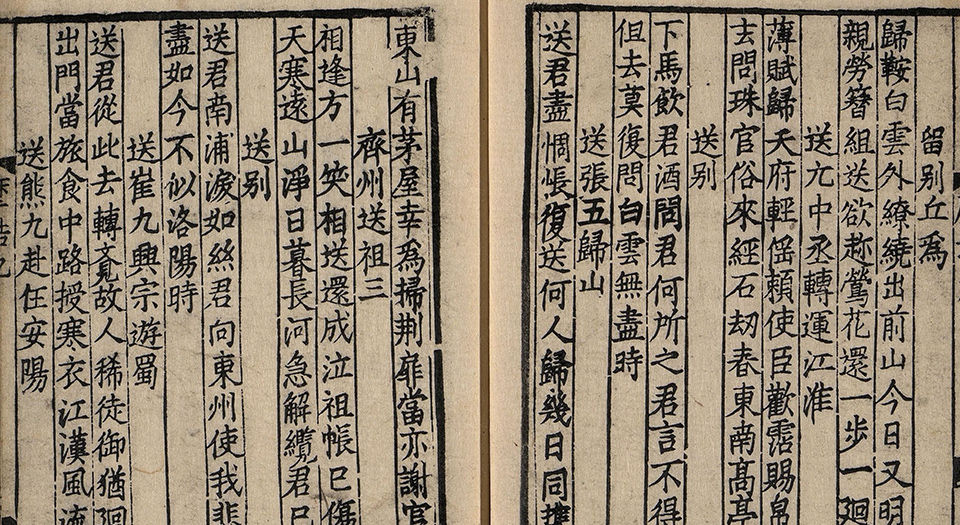 留别丘為
歸鞍白雲外繚繞出前山今日又明
親勞簪組送欲趂鶯花還一步一廻
送亢中丞轉運江淮
薄賦歸天府輕徭頼使臣歡霑賜帛
去問珠官俗來經石劫春東南高亭
送别
下馬飲君酒問君何所之君言不得
但去莫復問白雲無盡時
送張五歸山
送君盡惆悵復送何人歸幾日同攜
東山有茅屋幸爲掃荆扉當亦謝官
齊州送祖三
相逢方一笑相送還成泣祖帳已傷
天寒遠山淨日暮長河急解纜君已
送别
送君南浦淚如絲君向東州使我悲
盡如今不似洛陽時
送崔九興宗遊蜀
送君從此去轉覔故人稀徒御猶廻
出門當旅食中路授寒衣江漢風流
送熊九赴任安陽